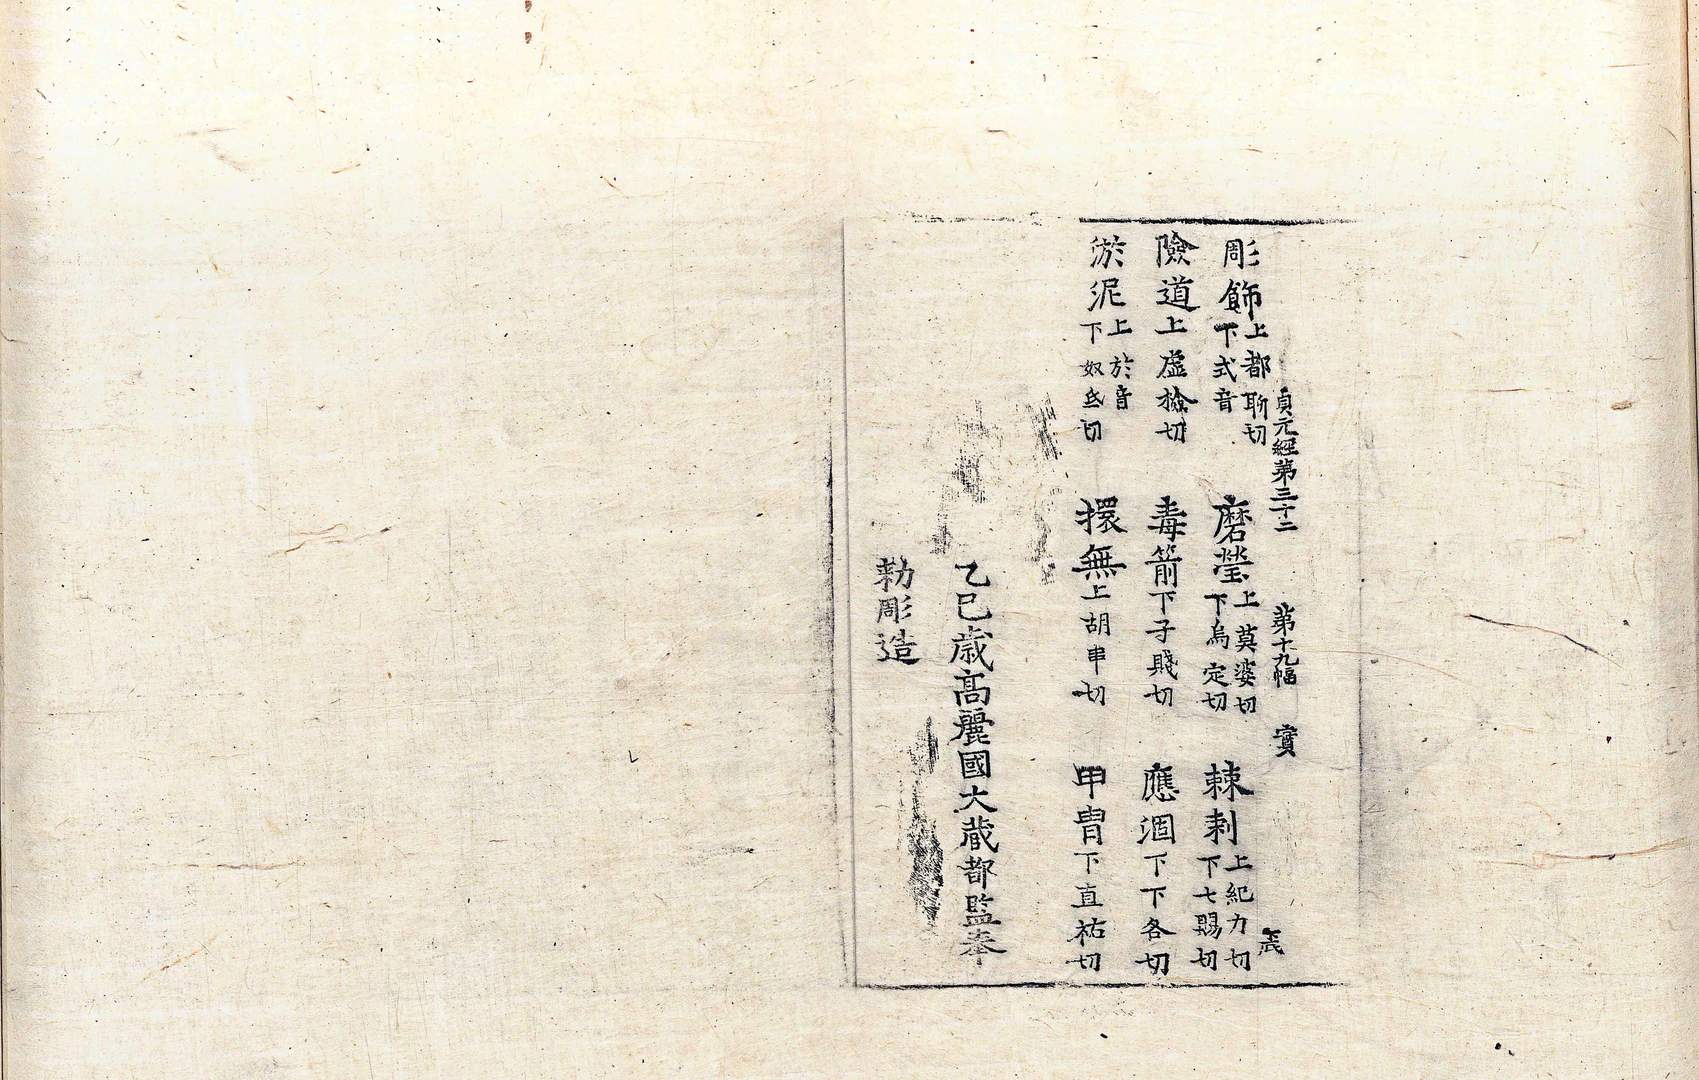 貞元經第三十二 第十九幅 實
彫飾上都聊切下式音 磨瑩上莫婆切下烏定切 棘刺上紀力切下七賜切
險道上虛撿切 毒箭下子賤切 應涸下下各切
淤泥上於音下奴低切 擐無上胡串切 甲冑下直祐切
乙巳歳高麗國大藏都監奉
勅彫造